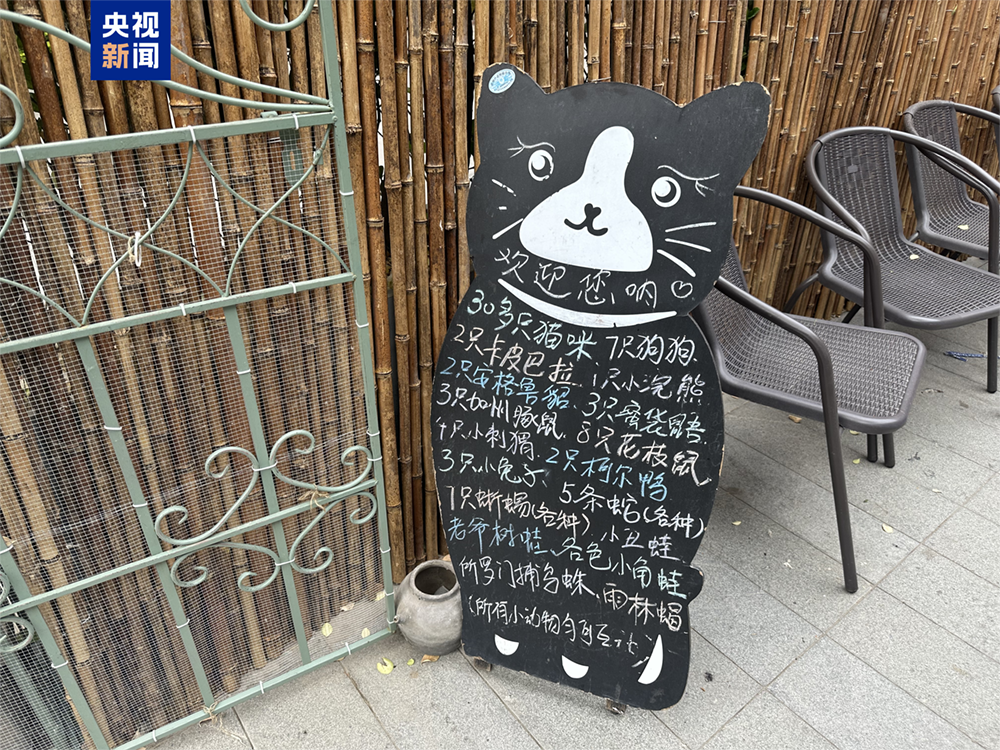 央视
新闻
欢迎您呐♡
30多只猫咪 7只狗狗.
2只卡皮巴拉. 1只小浣熊
2只安格鲁貂. 3只蜜袋鼯.
3只加州豚鼠. 8只花枝鼠
4只小刺猬. 2只柯尔鸭
3只小兔子.
7只蜥蜴(各种) 5条蛇(各种)
老爷树蛙、各色小丑蛙
所罗门捕鸟蛛、小角蛙
雨林蝎.
(所有小动物均可互动